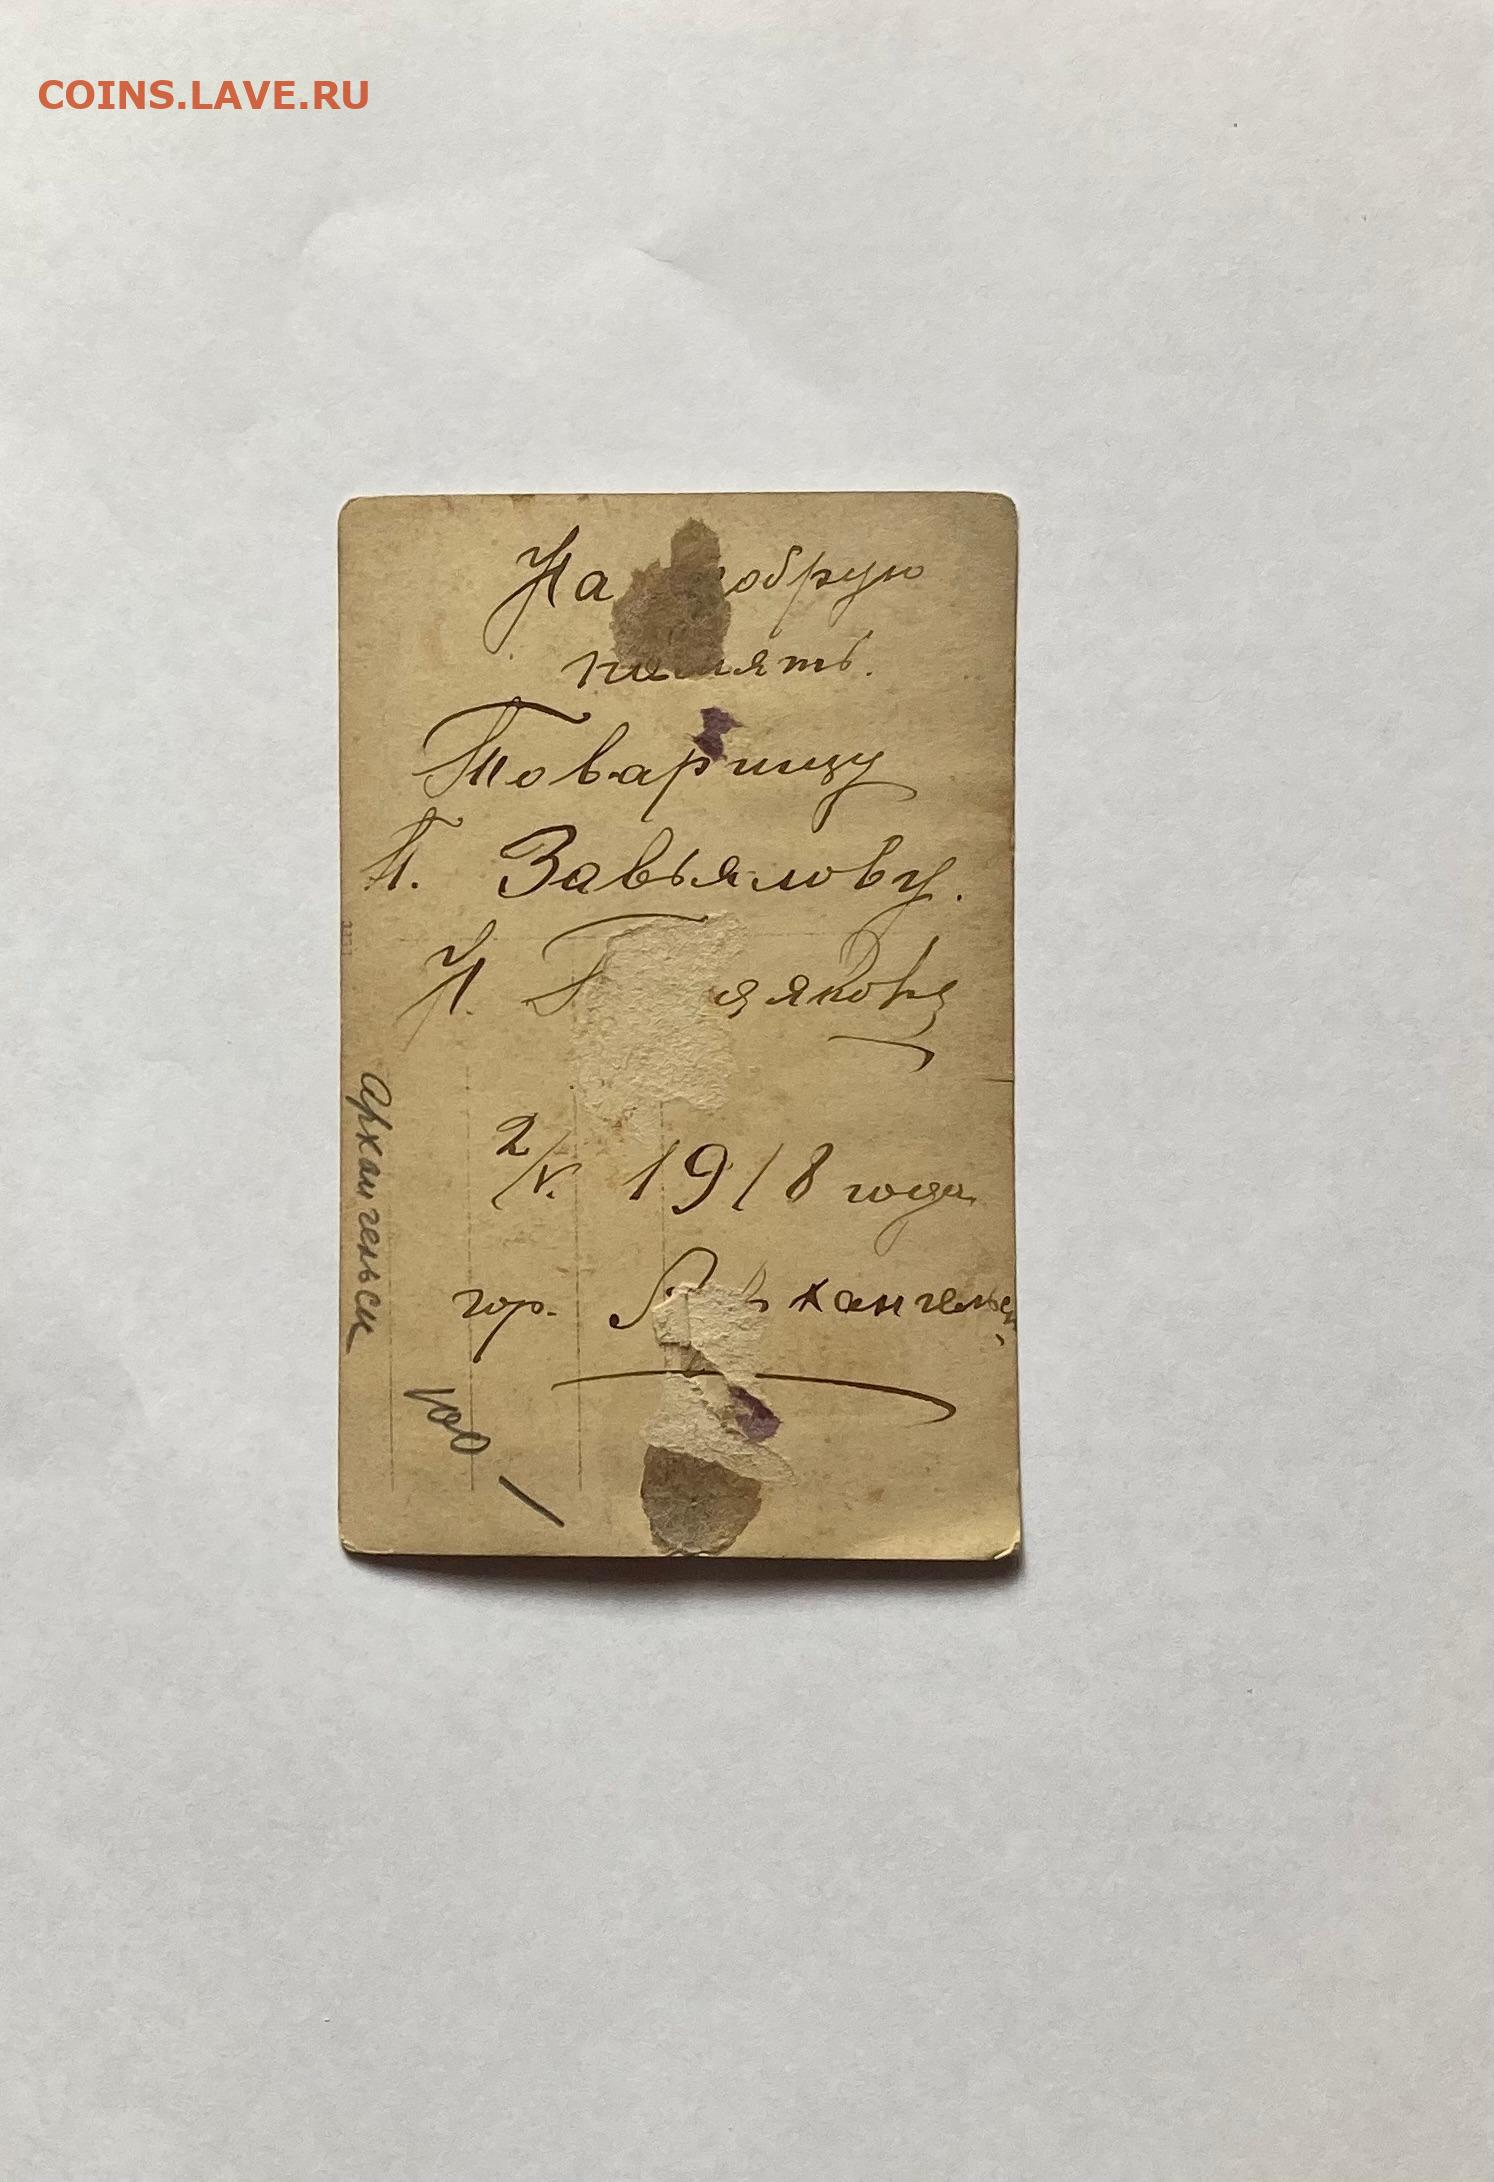 COINS.LAVE.RU
На добрую
память.
Товарищу
П. Завьялову.
Н.
2/V. 1918 года
гор. Архангельск
Архангельск
100